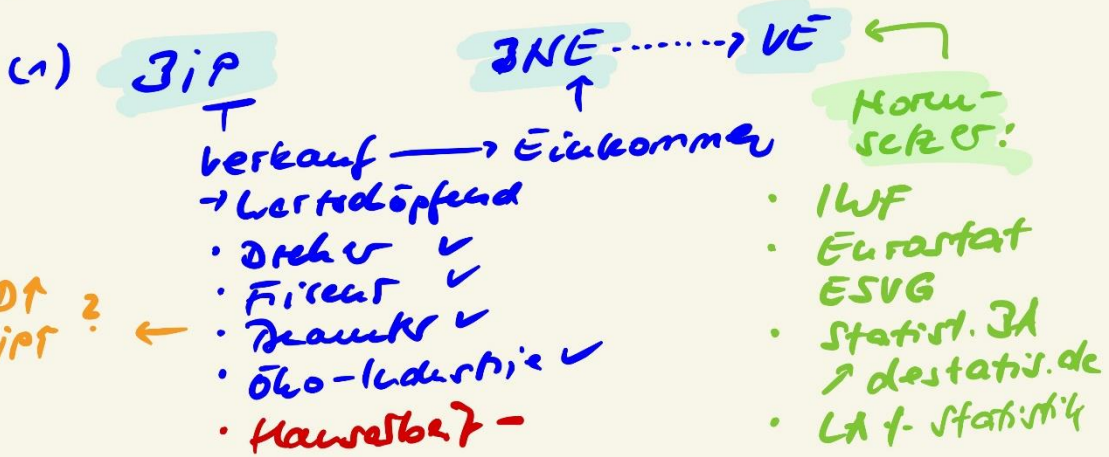 (1) BiP BNE ........> VE
Verkauf → Einkommen
→ Wertschöpfend
· Dreher ✓
· Friseur ✓
· Beamter ✓
· Öko-Industrie ✓
· Hausarbeit –
?
←
Norm-
setzer:
· IWF
· Eurostat
ESVG
· Statist. BA
↗ destatis.de
· LA f. Statistik